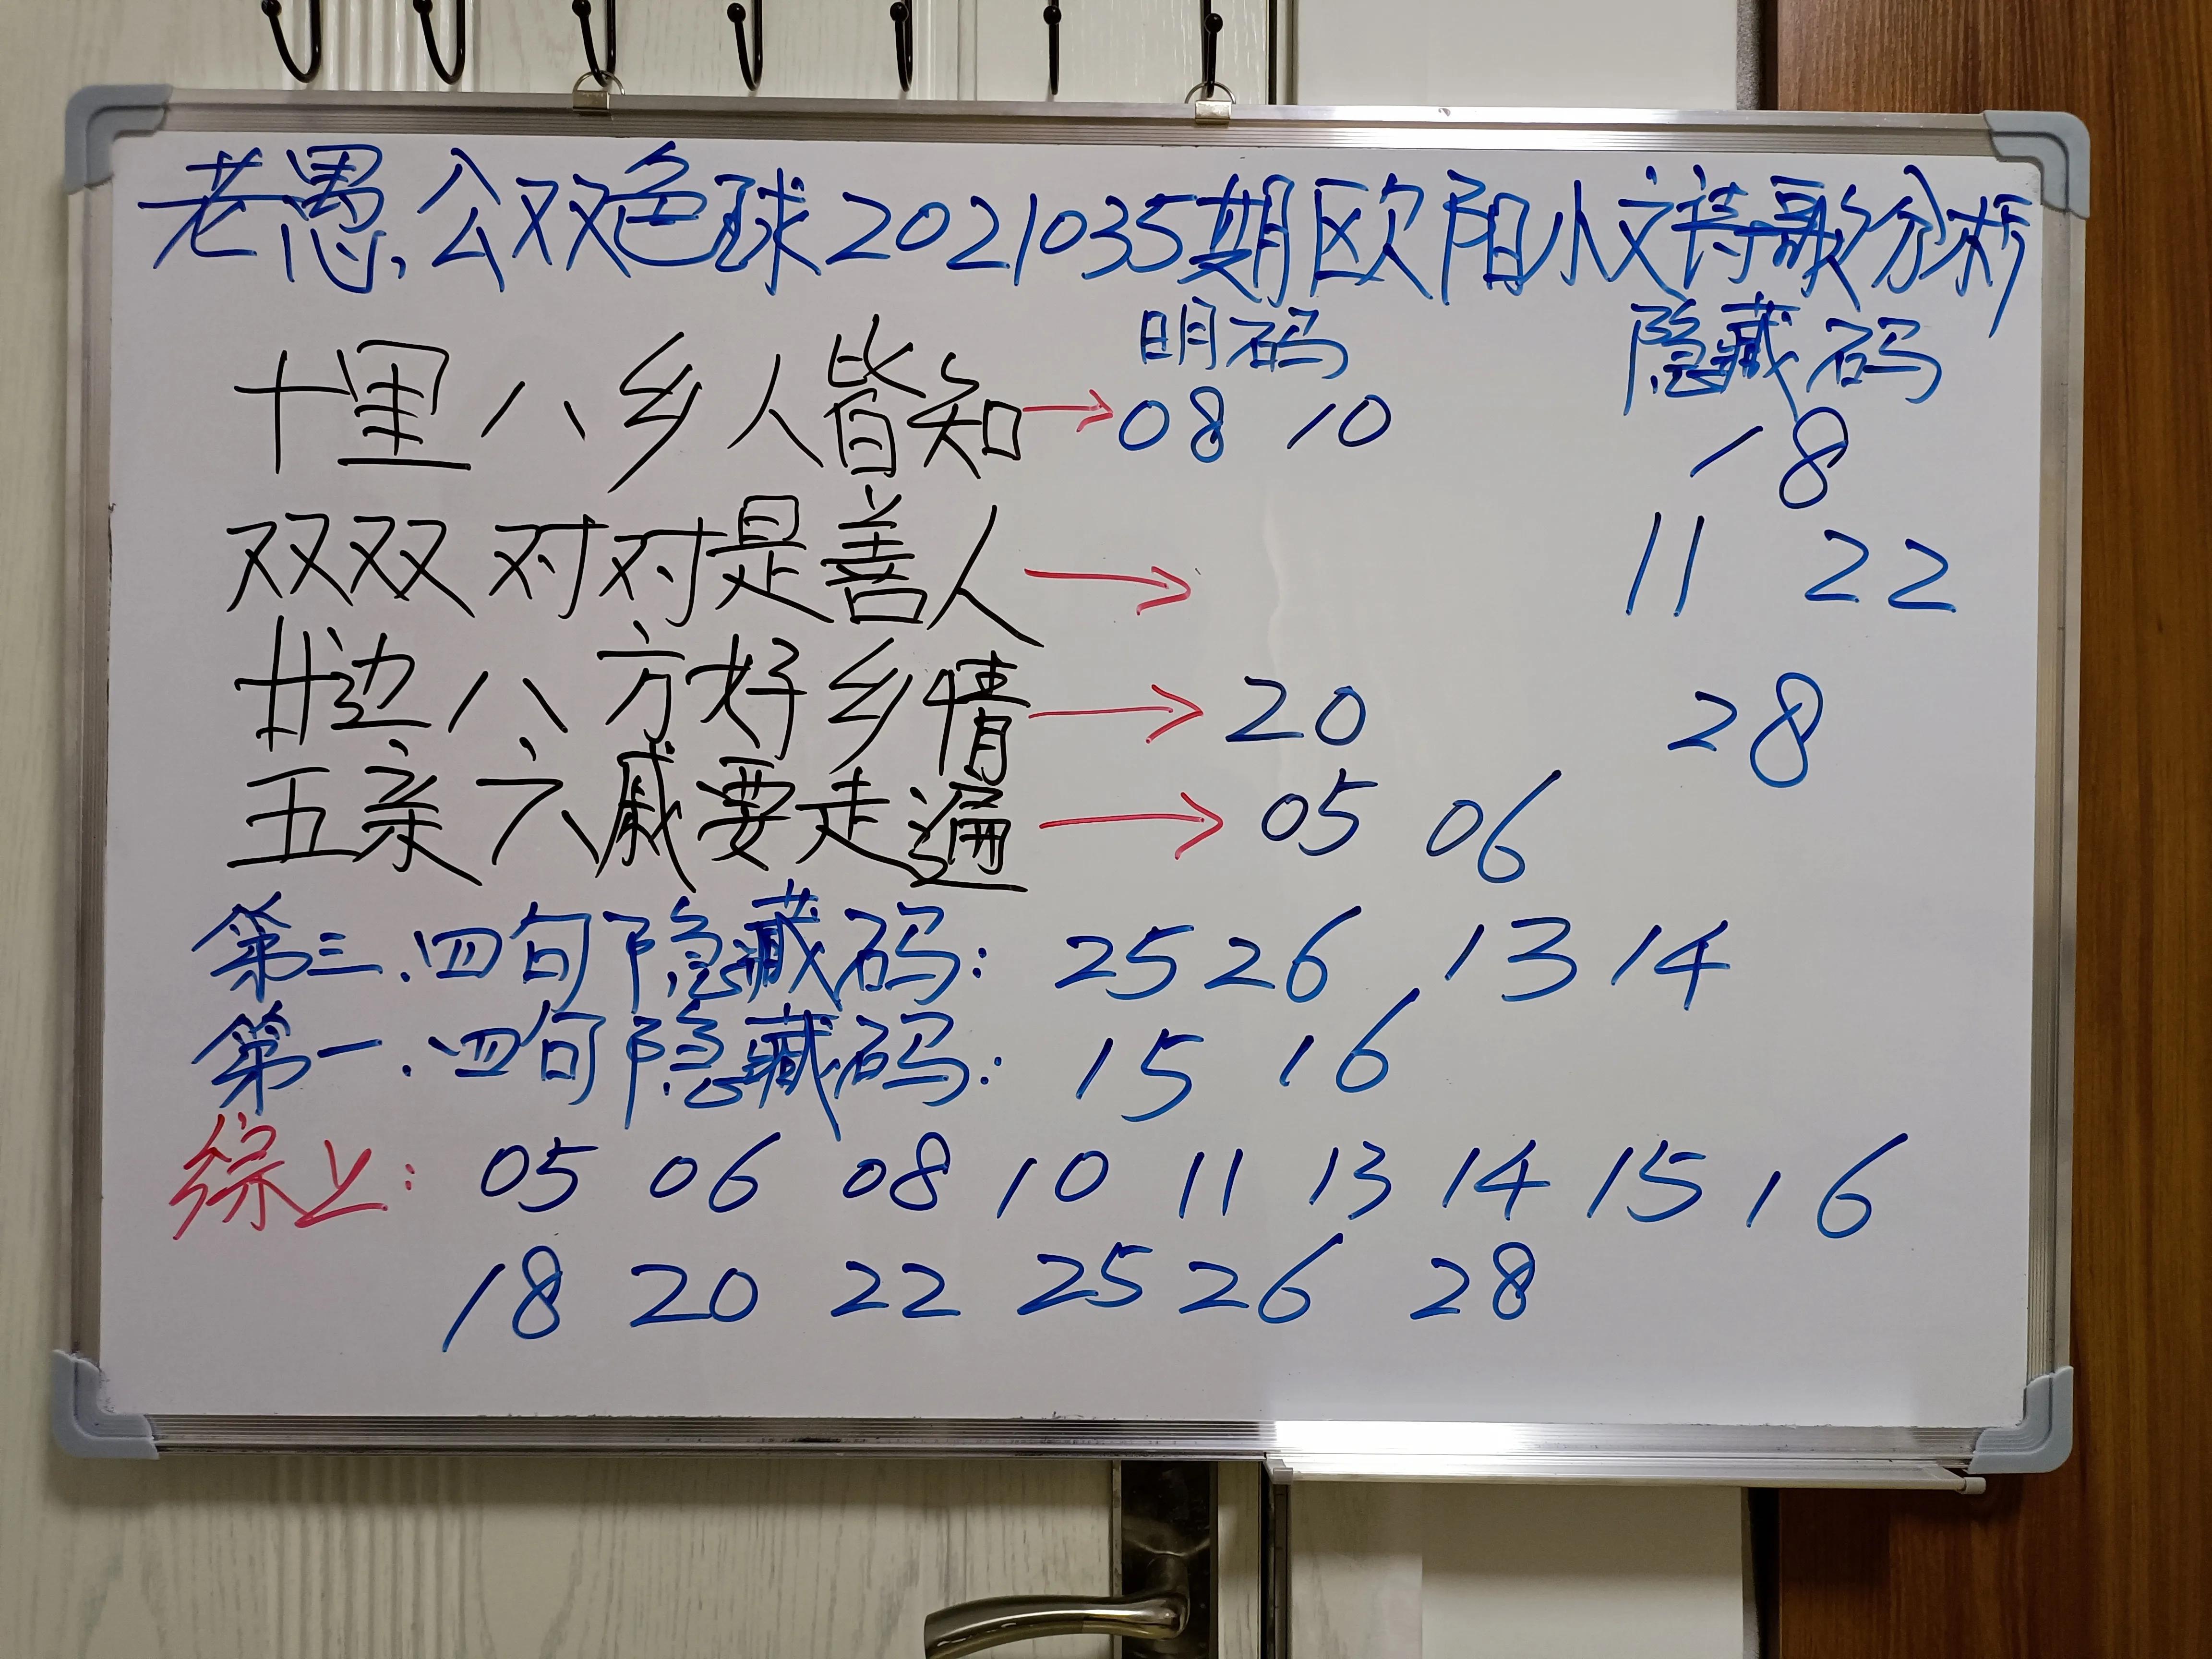 老愚公双色球2021035期欧阳小文诗歌分析
明码 隐藏码
十里八乡人皆知→08 10 18
双双对对是善人→ 11 22
廿边八方好乡情→20 28
五亲六戚要走遍→05 06
第三.四句隐藏码: 25 26 13 14
第一.四句隐藏码: 15 16
综上: 05 06 08 10 11 13 14 15 16
18 20 22 25 26 28